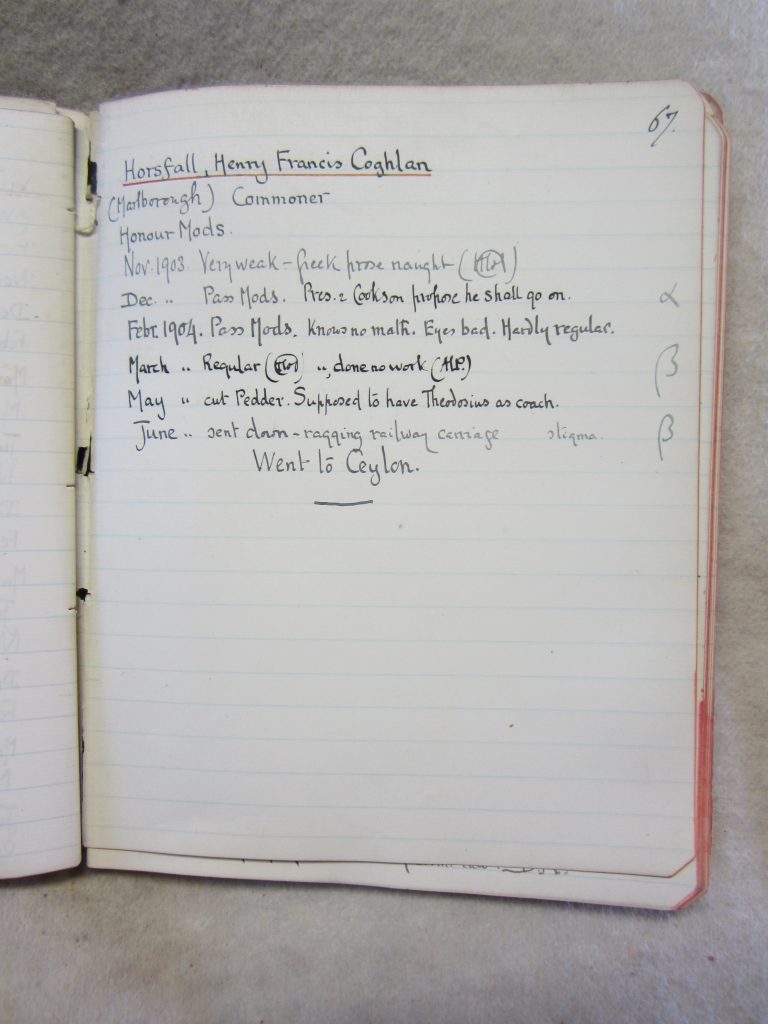 67.
Horsfall, Henry Francis Coghlan
(Marlborough) Commoner
Honour Mods.
Nov. 1903. Very weak - Greek prose naught
Dec. " Pass Mods. Pres. & Cookson propose he shall go on. α
Febr. 1904. Pass Mods. Knows no math. Eyes bad. Hardly regular.
March " Regular " , done no work (A.P.) β
May " cut Pedder. Supposed to have Theodosius as coach.
June " sent down - ragging railway carriage stigma. β
Went to Ceylon.